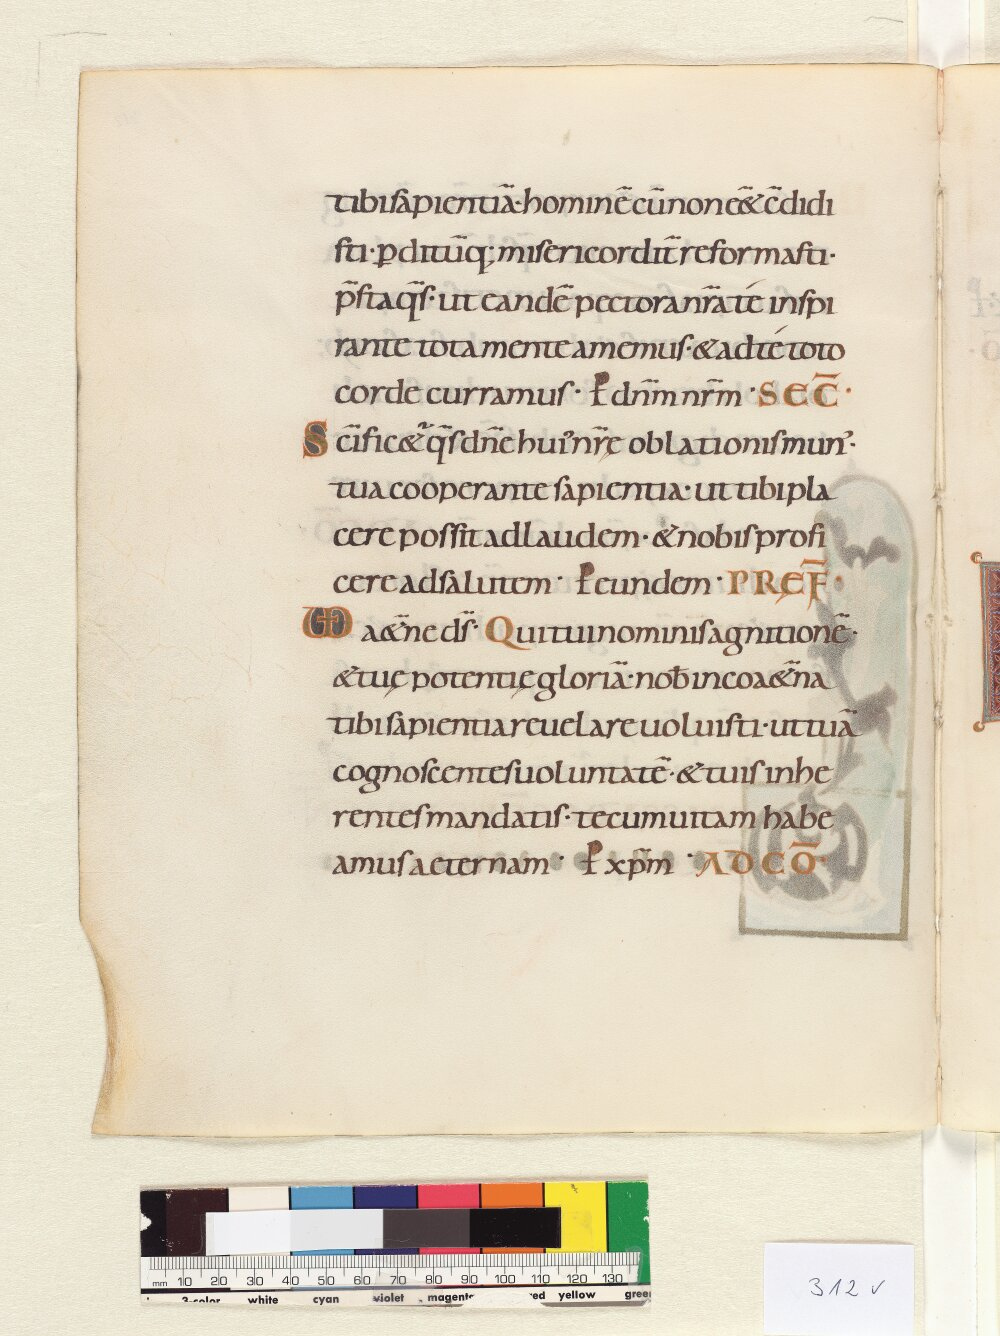 tibi sapientiā· hominē cū non eēt cōdidi
sti· ꝑditūq; misericordit̄ reformasti·
p̄sta q̄s· ut eandē pectora nr̄a té inspi
rante tota mente amemus· & ad té toto
corde curramus· ꝑ dn̄m nr̄m · SEC̄·
Sc̄ific& q̄s dn̄e hui' nr̄ę oblationis mun'·
tua cooperante sapientia· ut tibi pla
cere possit ad laudem· & nobis profi
cere ad salutem· ꝑ eundem· PREF̄·
VD a&n̄e ds̄· Qui tui nominis agnitionē·
& tuę potentię gloriā· nob̄ in coa&n̄a
tibi sapientia reuelare uoluisti· ut tuā
cognoscentes uoluntatē· & tuis inhe
rentes mandatis· tecum uitam habe
amus aeternam· ꝑ xp̄m · AD CŌ·
mm 10 20 30 40 50 60 70 80 90 100 110 120 130
3-color white cyan violet magenta red yellow green
312 v